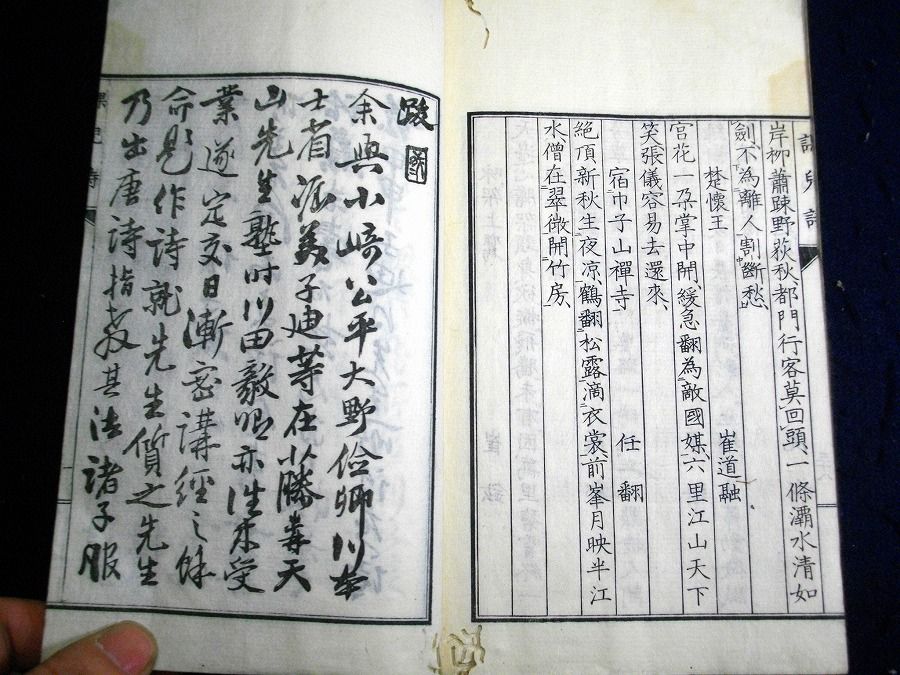 課兒詩
岸柳蕭踈野荻秋都門行客莫回頭一條灞水清如
劍不為離人割斷愁
楚懷王 崔道融
宮花一朶掌中開緩急翻為敵國媒六里江山天下
笑張儀容易去還來
宿巾子山禪寺 任翻
絕頂新秋生夜凉鶴翻松露滴衣裳前峯月映半江
水僧在翠微開竹房
跋
余與小﨑公平大野儉卿川本
士省派美子迪等在小勝春天
山先生塾时川田毅卿亦ⅰ来受
業遂定交日漸密講經之餘
命題作詩就先生質之先生
乃出唐詩指爲其法諸子服
課兒詩